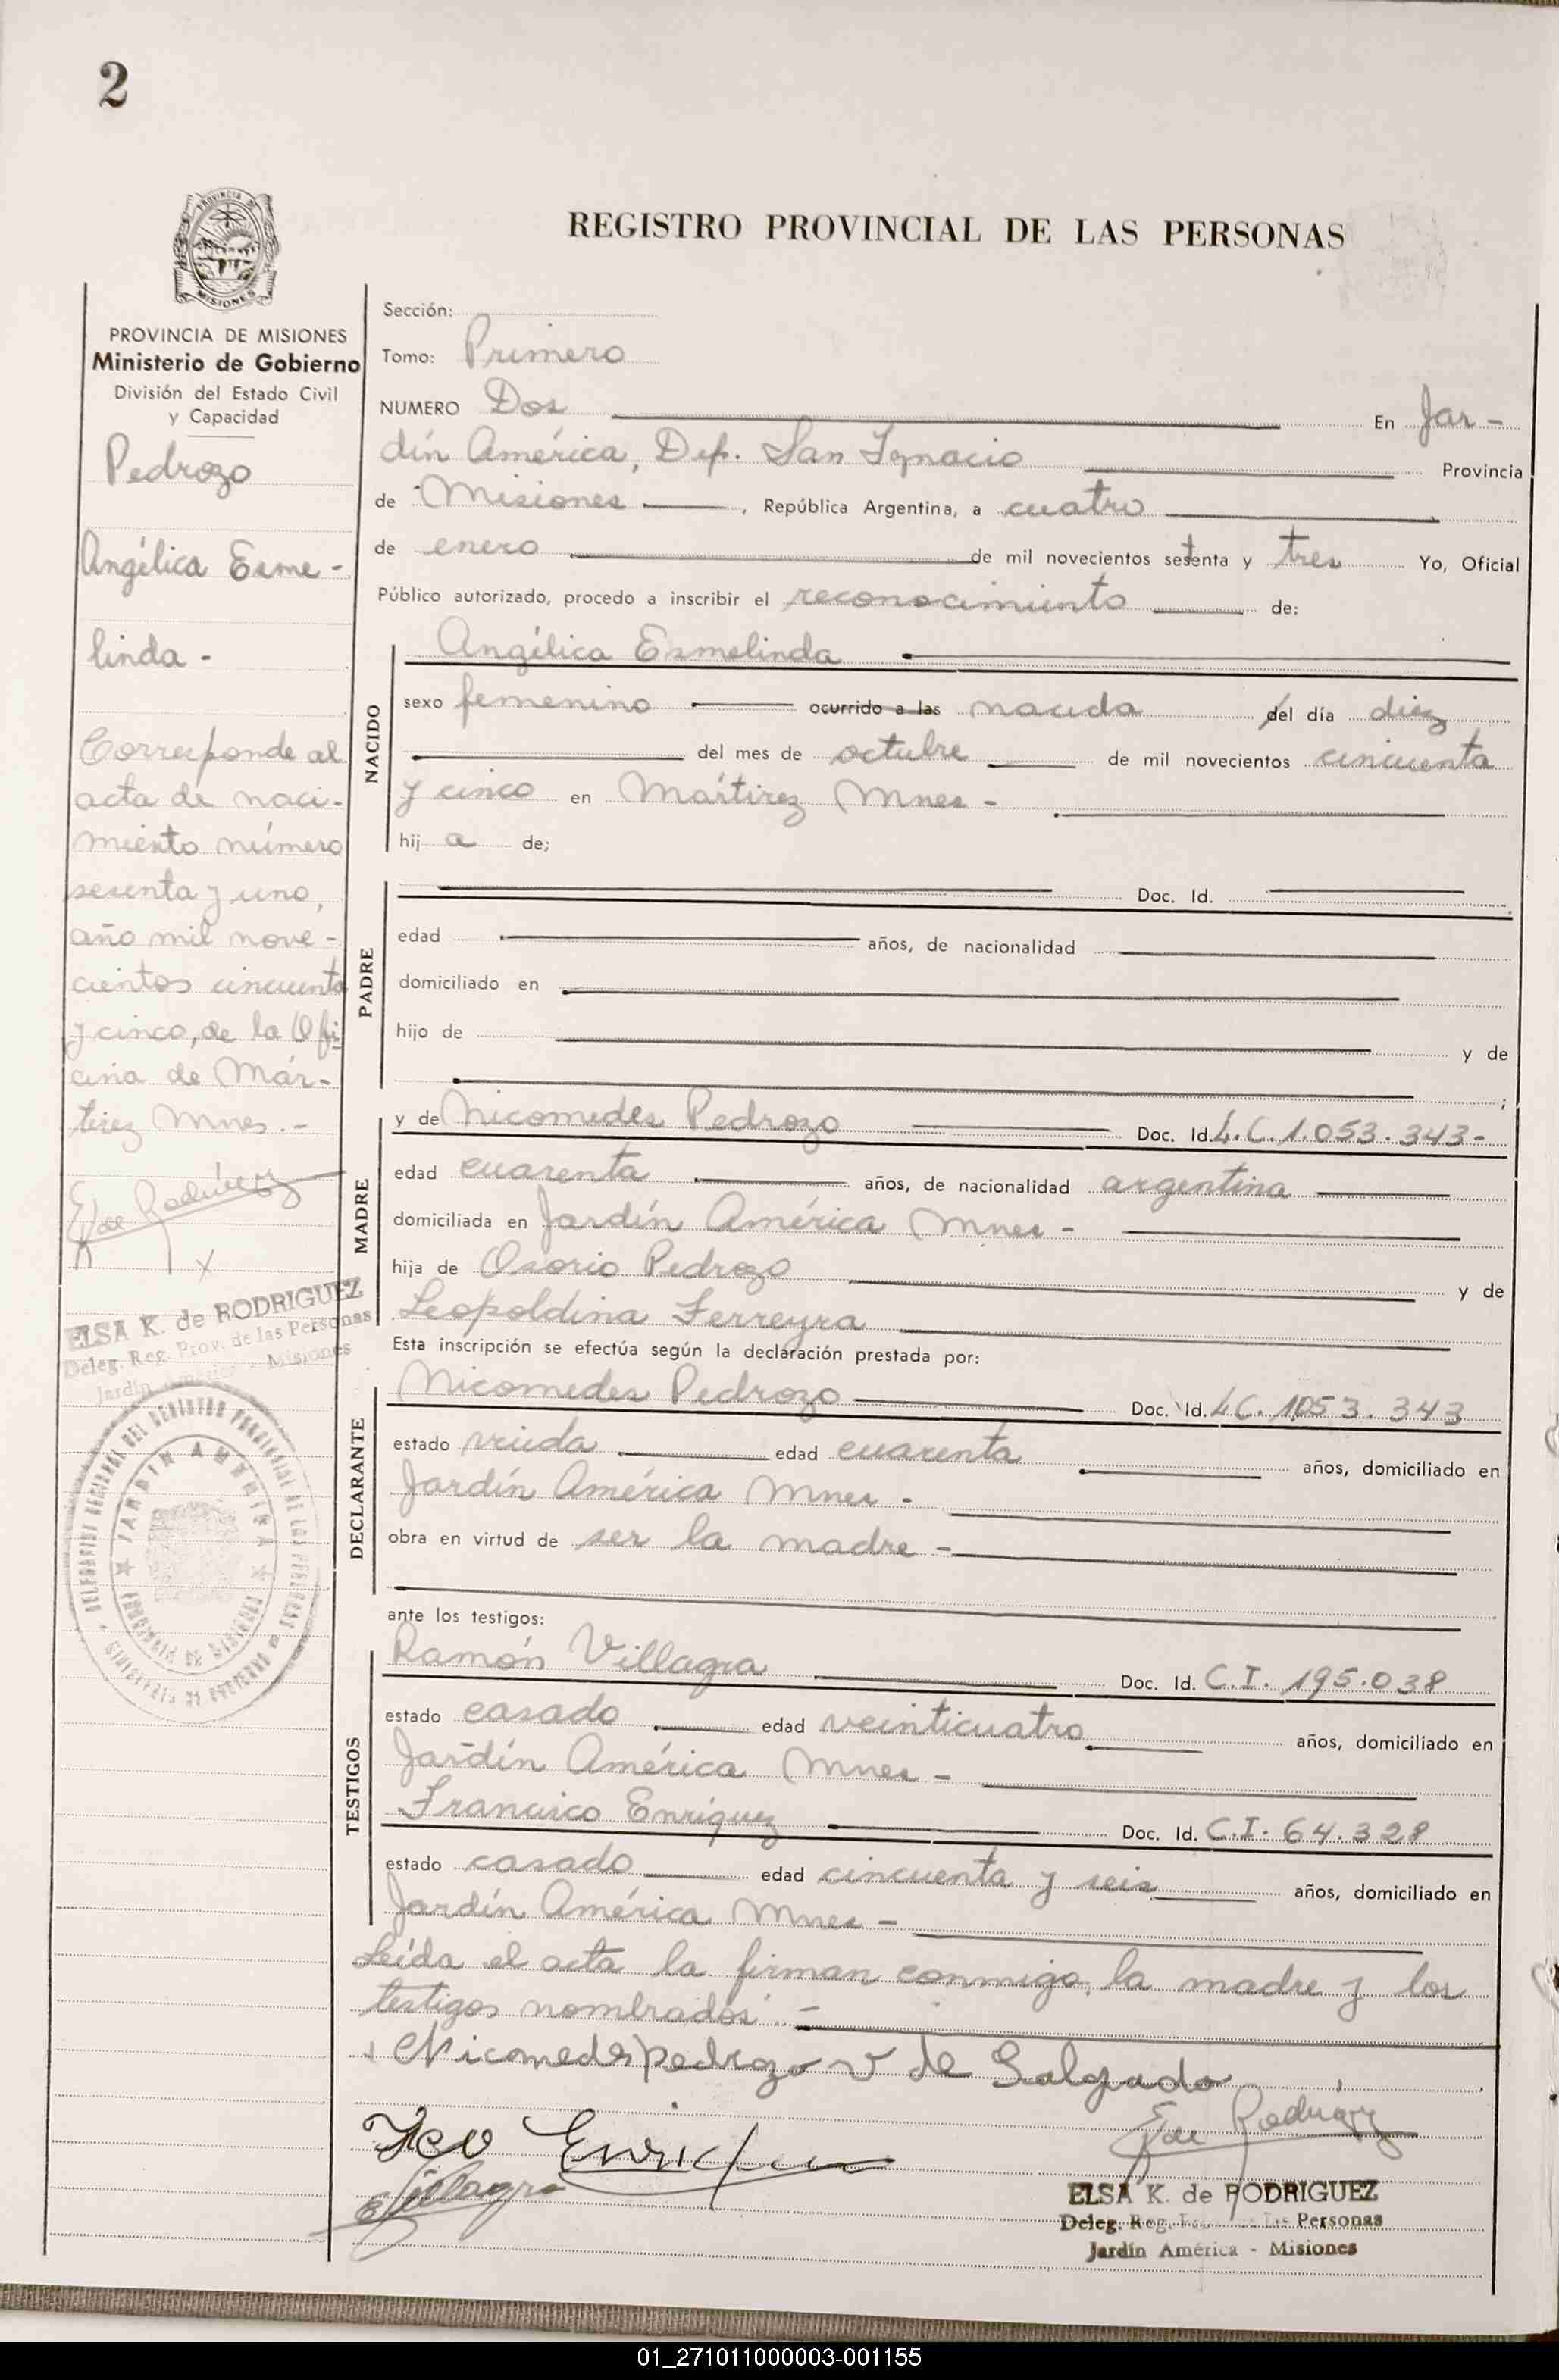 2
REGISTRO PROVINCIAL DE LAS PERSONAS
MISIONES
PROVINCIA DE MISIONES
Ministerio de Gobierno
División del Estado Civil
y Capacidad
Pedrozo
Angélica Esme-
linda -
Corresponde al
acta de naci-
miento número
sesenta y uno,
año mil nove-
cientos cincuenta
y cinco, de la Ofi
cina de Már-
tirez Mnes. -
E K de Rodríguez
ELSA K. de RODRIGUEZ
Deleg. Reg. Prov. de las Personas
Jardín América - Misiones
JARDIN AMERICA
Sección:
Tomo: Primero
NUMERO Dos En Jar-
dín América, Dep. San Ignacio Provincia
de Misiones, República Argentina, a cuatro
de enero de mil novecientos setenta y tres Yo, Oficial
Público autorizado, procedo a inscribir el reconocimiento de:
NACIDO
Angélica Esmelinda
sexo femenino ocurrido a las nacida del día diez
del mes de octubre de mil novecientos cincuenta
y cinco en Mártirez Mnes -
hij a de;
PADRE
Doc. Id.
edad años, de nacionalidad
domiciliado en
hijo de y de
;
MADRE
y de Nicomedes Pedrozo Doc. Id. L.C. 1.053.343-
edad cuarenta años, de nacionalidad argentina
domiciliada en Jardín América Mnes -
hija de Osorio Pedrozo y de
Leopoldina Ferreyra
Esta inscripción se efectúa según la declaración prestada por:
DECLARANTE
Nicomedes Pedrozo Doc. Id. L.C. 1.053.343
estado viuda edad cuarenta años, domiciliado en
Jardín América Mnes -
obra en virtud de ser la madre -
ante los testigos:
TESTIGOS
Ramón Villagra Doc. Id. C.I. 195.038
estado casado edad veinticuatro años, domiciliado en
Jardín América Mnes -
Francisco Enríquez Doc. Id. C.I. 64.328
estado casado edad cincuenta y seis años, domiciliado en
Jardín América Mnes -
Leída el acta la firman conmigo, la madre y los
testigos nombrados. -
Nicomedes pedrozo v de Salgado
Fco Enriquez
Villagra
ELSA K. de RODRIGUEZ
Deleg. Reg. Personas
Jardín América - Misiones
01_271011000003-001155